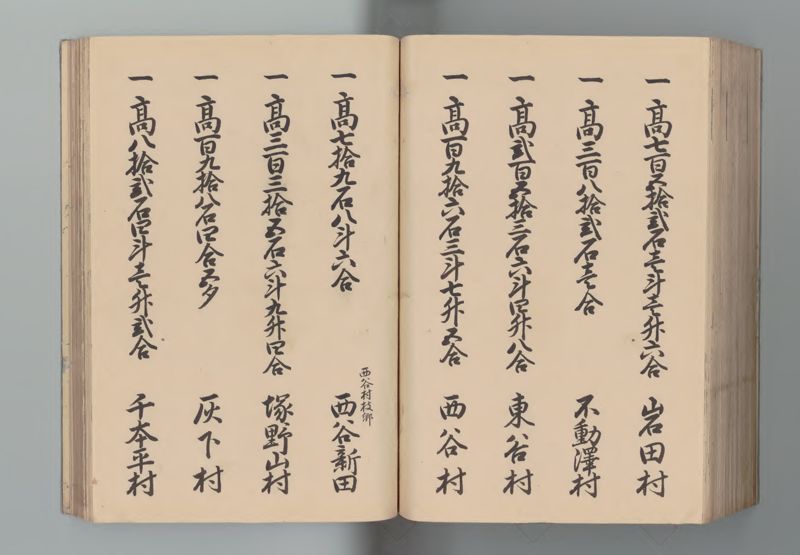 一高七百五拾弐石壱斗壱升六合 岩田村
一高三百八拾弐石壱合 不動澤村
一高弐百五拾三石六斗四升八合 東谷村
一高百九拾六石三斗七升五合 西谷村
西谷村枝郷
一高七拾九石八斗六合 西谷新田
一高三百三拾五石六斗九升四合 塚野山村
一高百九拾八石四合五夕 灰下村
一高八拾弐石四斗壱升弐合 千本平村